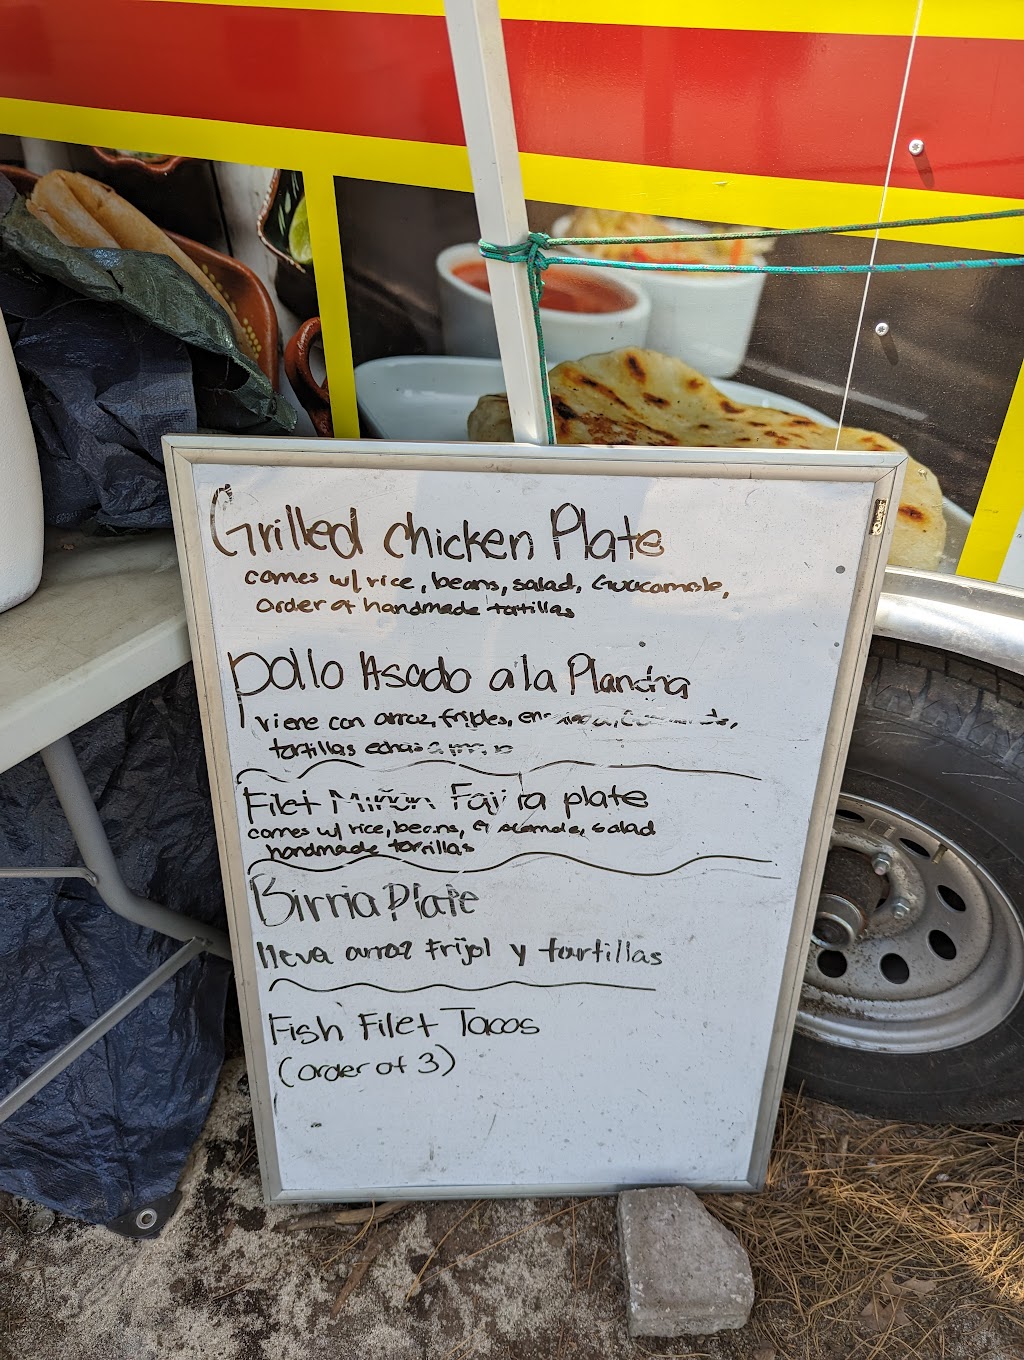 Grilled chicken Plate
comes w/ rice, beans, salad, Guacamole,
order of handmade tortillas
Pollo Asado a la Plancha
viene con arroz, frijoles,
tortillas echas a mano
Filet Miñon Fajita plate
comes w/ rice, beans, salad
handmade torrillas
Birria Plate
lleva arroz frijol y tortillas
Fish Filet Tacos
(order of 3)